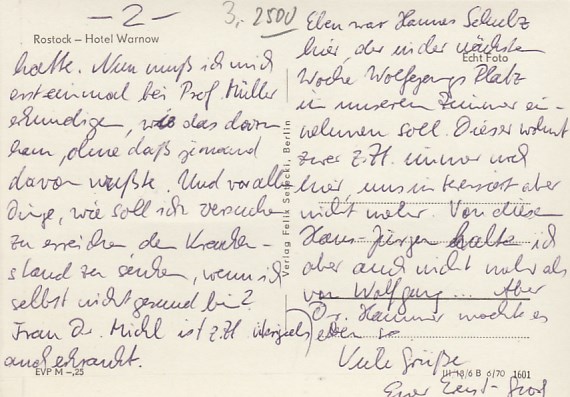 – 2 –
3,- 2500
Rostock – Hotel Warnow
hatte. Nun muß ich mich
erst einmal bei Prof. Müller
erkundigen, wie das davon
kam, ohne daß jemand
davon wußte. Und vor allen
Dinge, wie soll ich versuchen
zu erreichen den Kranken-
stand zu senken, wenn ich
selbst nicht gesund bin?
Frau Dr. Michl ist z.Zt.
auch erkrankt.
EVP M –,25
Verlag Felix Setecki, Berlin
Eben war Hannes Schulz
hier, der in der nächsten
Echt Foto
Woche Wolfgangs Platz
in unserem Zimmer ein-
nehmen soll. Dieser wohnt
zwar z.Zt. immer noch
hier, uns interessiert aber
nicht mehr. Von diesem
Hans-Jürgen halte ich
aber auch nicht mehr als
von Wolfgang ... Aber
Dr. Hammer mochte es
eben so
Viele Grüße
III 18/6 B 6/70 1601
Euer Ernst-